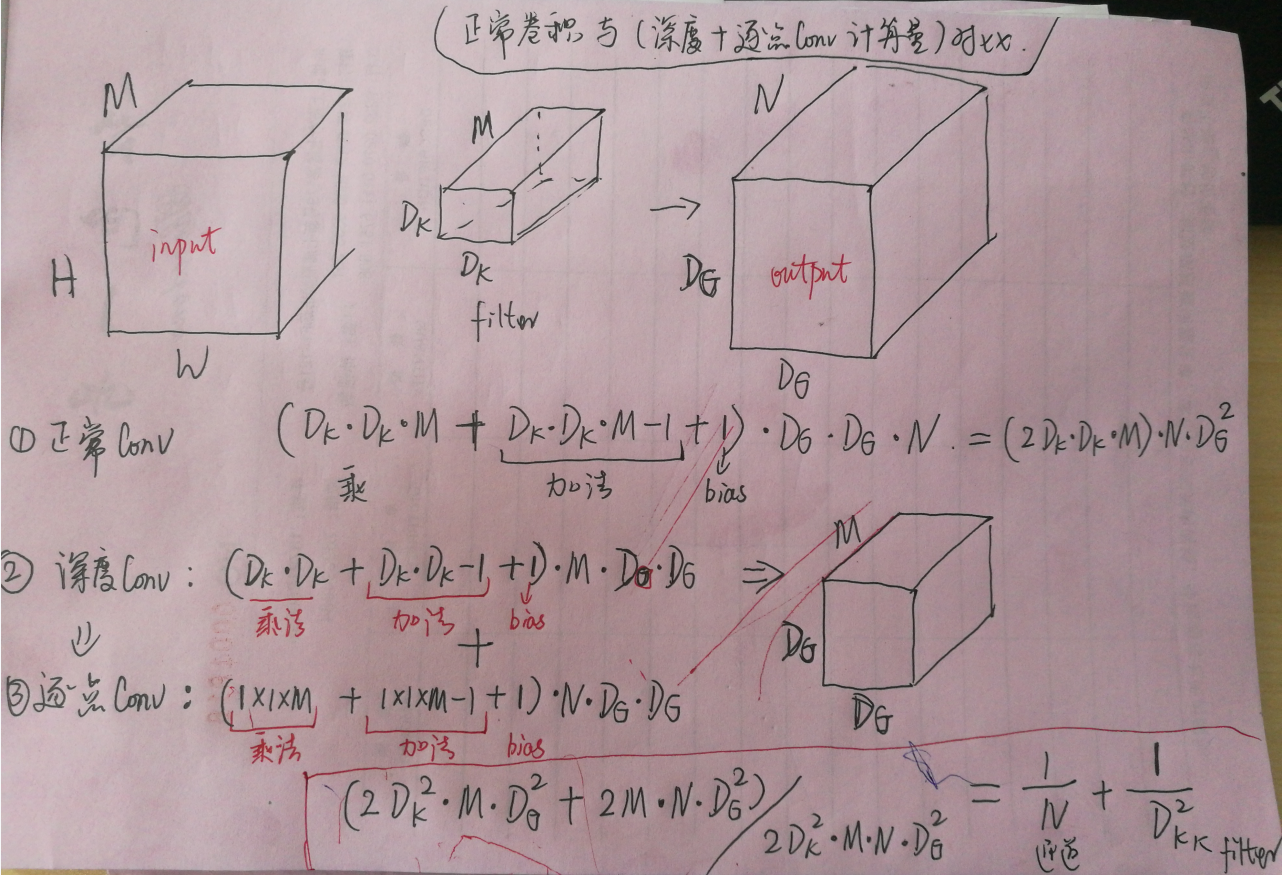 (正常卷积与(深度+逐点Conv计算量)对比.
M
M
N
input
D_K
D_K
filter
→
H
W
D_G
output
D_G
①正常Conv (D_K·D_K·M + D_K·D_K·M-1+1)·D_G·D_G·N.=(2D_K·D_K·M)·N·D_G^2
乘 加法 bias
②深度Conv: (D_K·D_K + D_K·D_K-1 +1)·M·D_G·D_G ⇒
乘法 加法 bias
M
D_G
D_G
⇓ +
③逐点Conv: (1×1×M + 1×1×M-1+1)·N·D_G·D_G
乘法 加法 bias
(2D_K^2·M·D_G^2+2M·N·D_G^2)/2D_K^2·M·N·D_G^2 = 1/N + 1/D_KK^2
filter